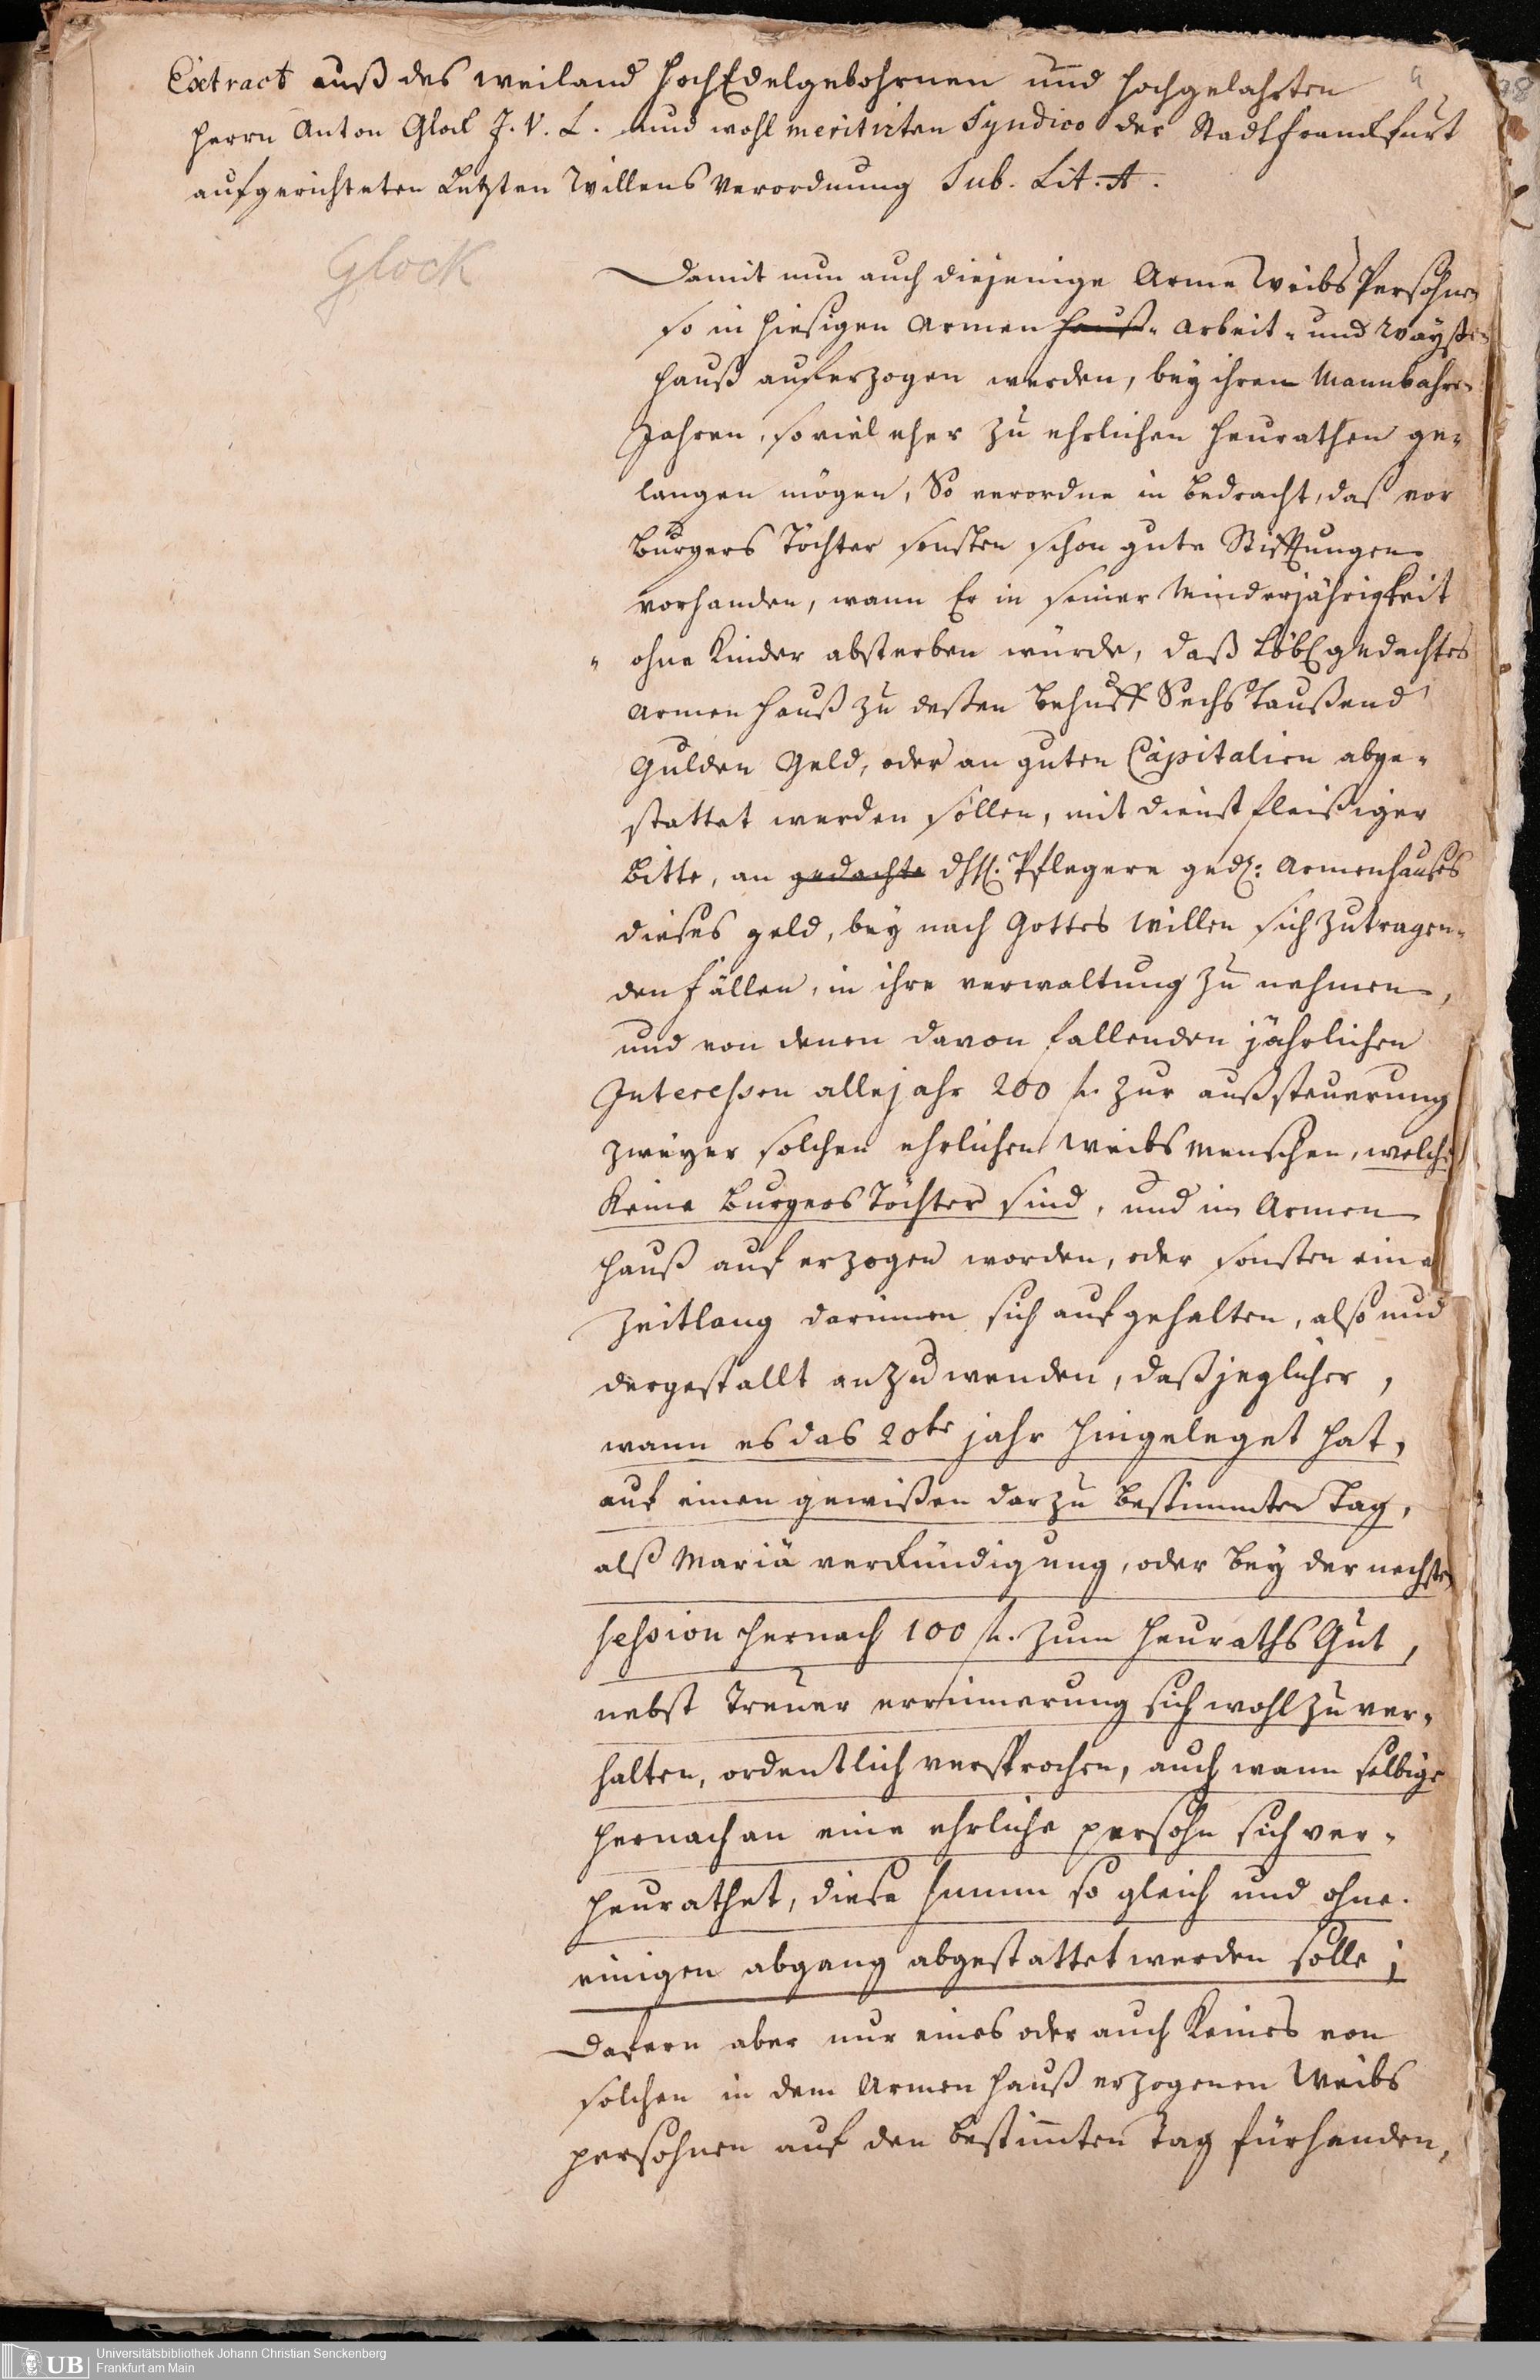 Extract auß des weiland HochEdelgebohrnen und Hochgelahrten
Herrn Anton Glock J. V. L. und wohl meritirten Syndico der Stadt Franckfurt
aufgerichteten Letzten Willens Verordnung Sub. Lit. A.
Glock
Damit nun auch diejenige Arme Weibs Persohnen
so in hiesigen Armen Hauß- Arbeit- und Wayßen
Hauß auferzogen werden, bey ihren Mannbahren
Jahren, so viel eher zu ehrlichen Heurathen ge-
langen mögen, So verordne in bedracht, daß vor
Burgers Töchter sonsten schon gute Stifftungen
vorhanden, wann Er in seiner Minderjährigkeit
" ohne Kinder absterben würde, daß Löbl gedachtes
Armen Hauß zu deßen behuff Sechs Taußend
Gulden Geld, oder an guten Capitalien abge-
stattet werden sollen, mit dienstfleißiger
Bitte, an gedachte Pflegere ged: Armenhauses
dieses geld, bey nach Gottes Willen sich zutragen-
den fällen, in ihre verwaltung zu nehmen,
und von denen davon fallenden jährlichen
Interessen alle jahr 200 fl. zur außsteuerung
zweyer solchen ehrlichen Weibs Menschen, welche
Keine Burgers Töchter sind, und im Armen
Hauß auf erzogen worden, oder sonsten eine
Zeitlang darinnen sich aufgehalten, also und
dergestallt anzuwenden, daß jeglicher,
wann es das 20te jahr hingeleget hat,
auf einen gewißen darzu bestimmten Tag,
alß Mariä verkündigung, oder bey der nechsten
session hernach 100 fl. zum HeurathsGut,
nebst Treuer errinnerung sich wohl zu ver-
halten, ordentlich versprochen, auch wann selbige
hernach an eine ehrliche persohn sich ver-
heurathet, diese summ so gleich und ohne
einigen abgang abgestattet werden solle;
Dafern aber nur eines oder auch Keines von
solchen in dem Armen Hauß erzogenen Weibs
persohnen auf den bestimten Tag fürhanden,
UB
Universitätsbibliothek Johann Christian Senckenberg
Frankfurt am Main